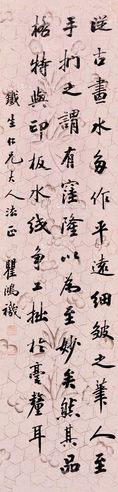 從古畫水多作平遠細皴之筆人至
手捫之謂有窪隆以為至妙矣然其品
格特與印板水线争工拙於毫釐耳
鐵生仁兄大人法正 瞿鴻禨